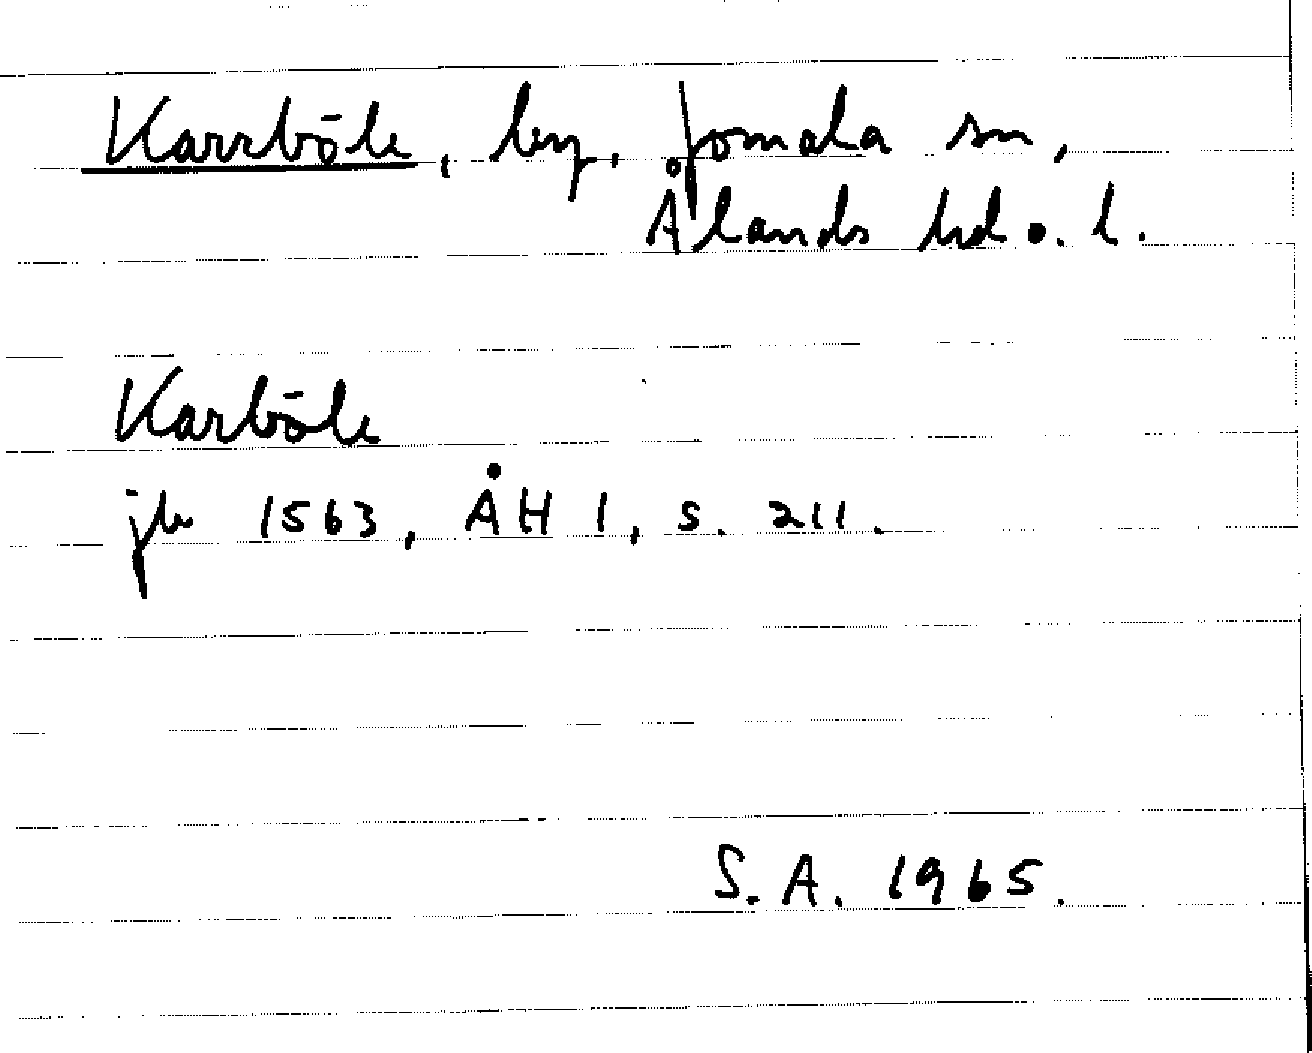 Karrböle, by, Jomala sn,
Ålands hd o. l.
Karböle
jb 1563, ÅH 1, s. 211.
S. A. 1965.